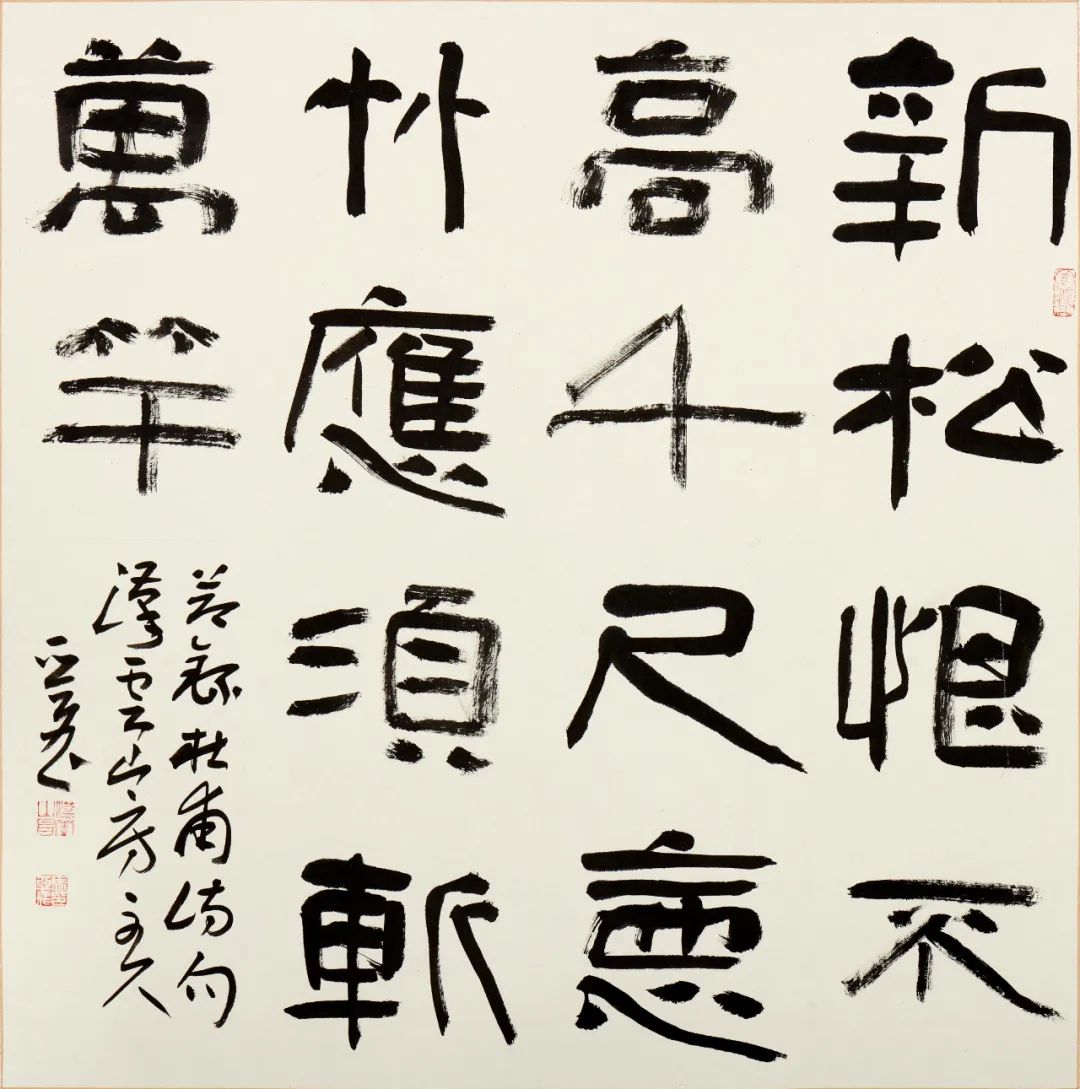 新松恨不
高千尺惡
竹應須斬
萬竿
節錄杜甫詩句
漢雲山房主人